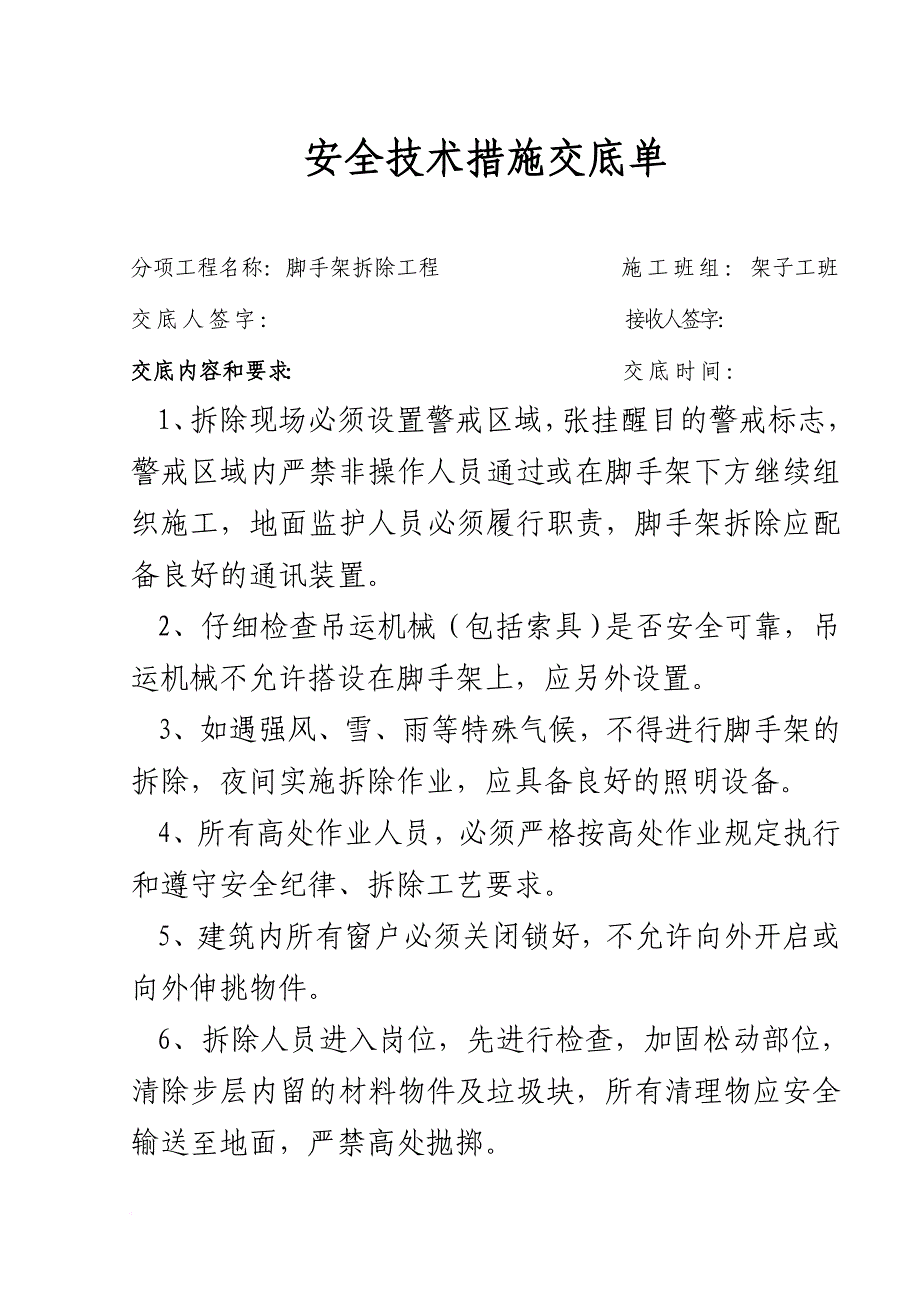 安全技术措施交底单
分项工程名称：脚手架拆除工程 施工班组：架子工班
交底人签字： 接收人签字：
交底内容和要求： 交底时间：
1、拆除现场必须设置警戒区域，张挂醒目的警戒标志，
警戒区域内严禁非操作人员通过或在脚手架下方继续组
织施工，地面监护人员必须履行职责，脚手架拆除应配
备良好的通讯装置。
2、仔细检查吊运机械（包括索具）是否安全可靠，吊
运机械不允许搭设在脚手架上，应另外设置。
3、如遇强风、雪、雨等特殊气候，不得进行脚手架的
拆除，夜间实施拆除作业，应具备良好的照明设备。
4、所有高处作业人员，必须严格按高处作业规定执行
和遵守安全纪律、拆除工艺要求。
5、建筑内所有窗户必须关闭锁好，不允许向外开启或
向外伸挑物件。
6、拆除人员进入岗位，先进行检查，加固松动部位，
清除步层内留的材料物件及垃圾块，所有清理物应安全
输送至地面，严禁高处抛掷。